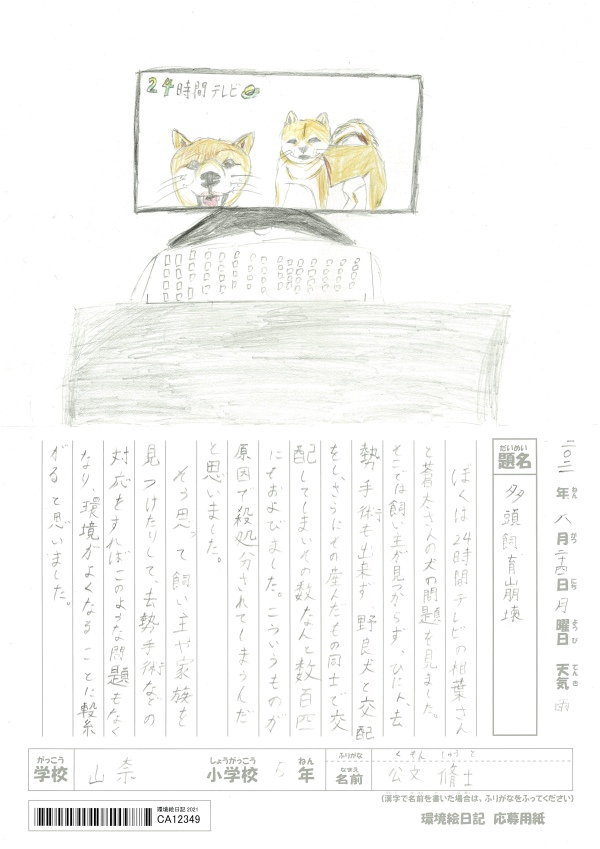 24時間テレビ
二〇二一年 八月二十四日 月曜日 天気 雨
ねん がつ にち ようび てんき
だいめい
題名 多頭飼育崩壊
ぼくは24時間テレビの相葉さん
と蒼大さんの犬の問題を見ました。
そこでは飼い主が見つからず、ひにん、去
勢手術も出来ず、野良犬と交配
をし、さらにその産んだもの同士で交
配してしまいその数なんと数百匹
にもおよびました。こういうものが
原因で殺処分されてしまうんだ
と思いました。
そう思って飼い主や家族を
見つけたりして、去勢手術などの
対応をすればこのような問題もなく
なり、環境がよくなることに繋
がると思いました。
がっこう しょうがっこう ねん ふりがな くもん しゅうと
学校 山奈 小学校 5年 なまえ 名前 公文 脩士
(漢字で名前を書いた場合は、ふりがなをふってください)
環境絵日記 2021
CA12349
環境絵日記 応募用紙